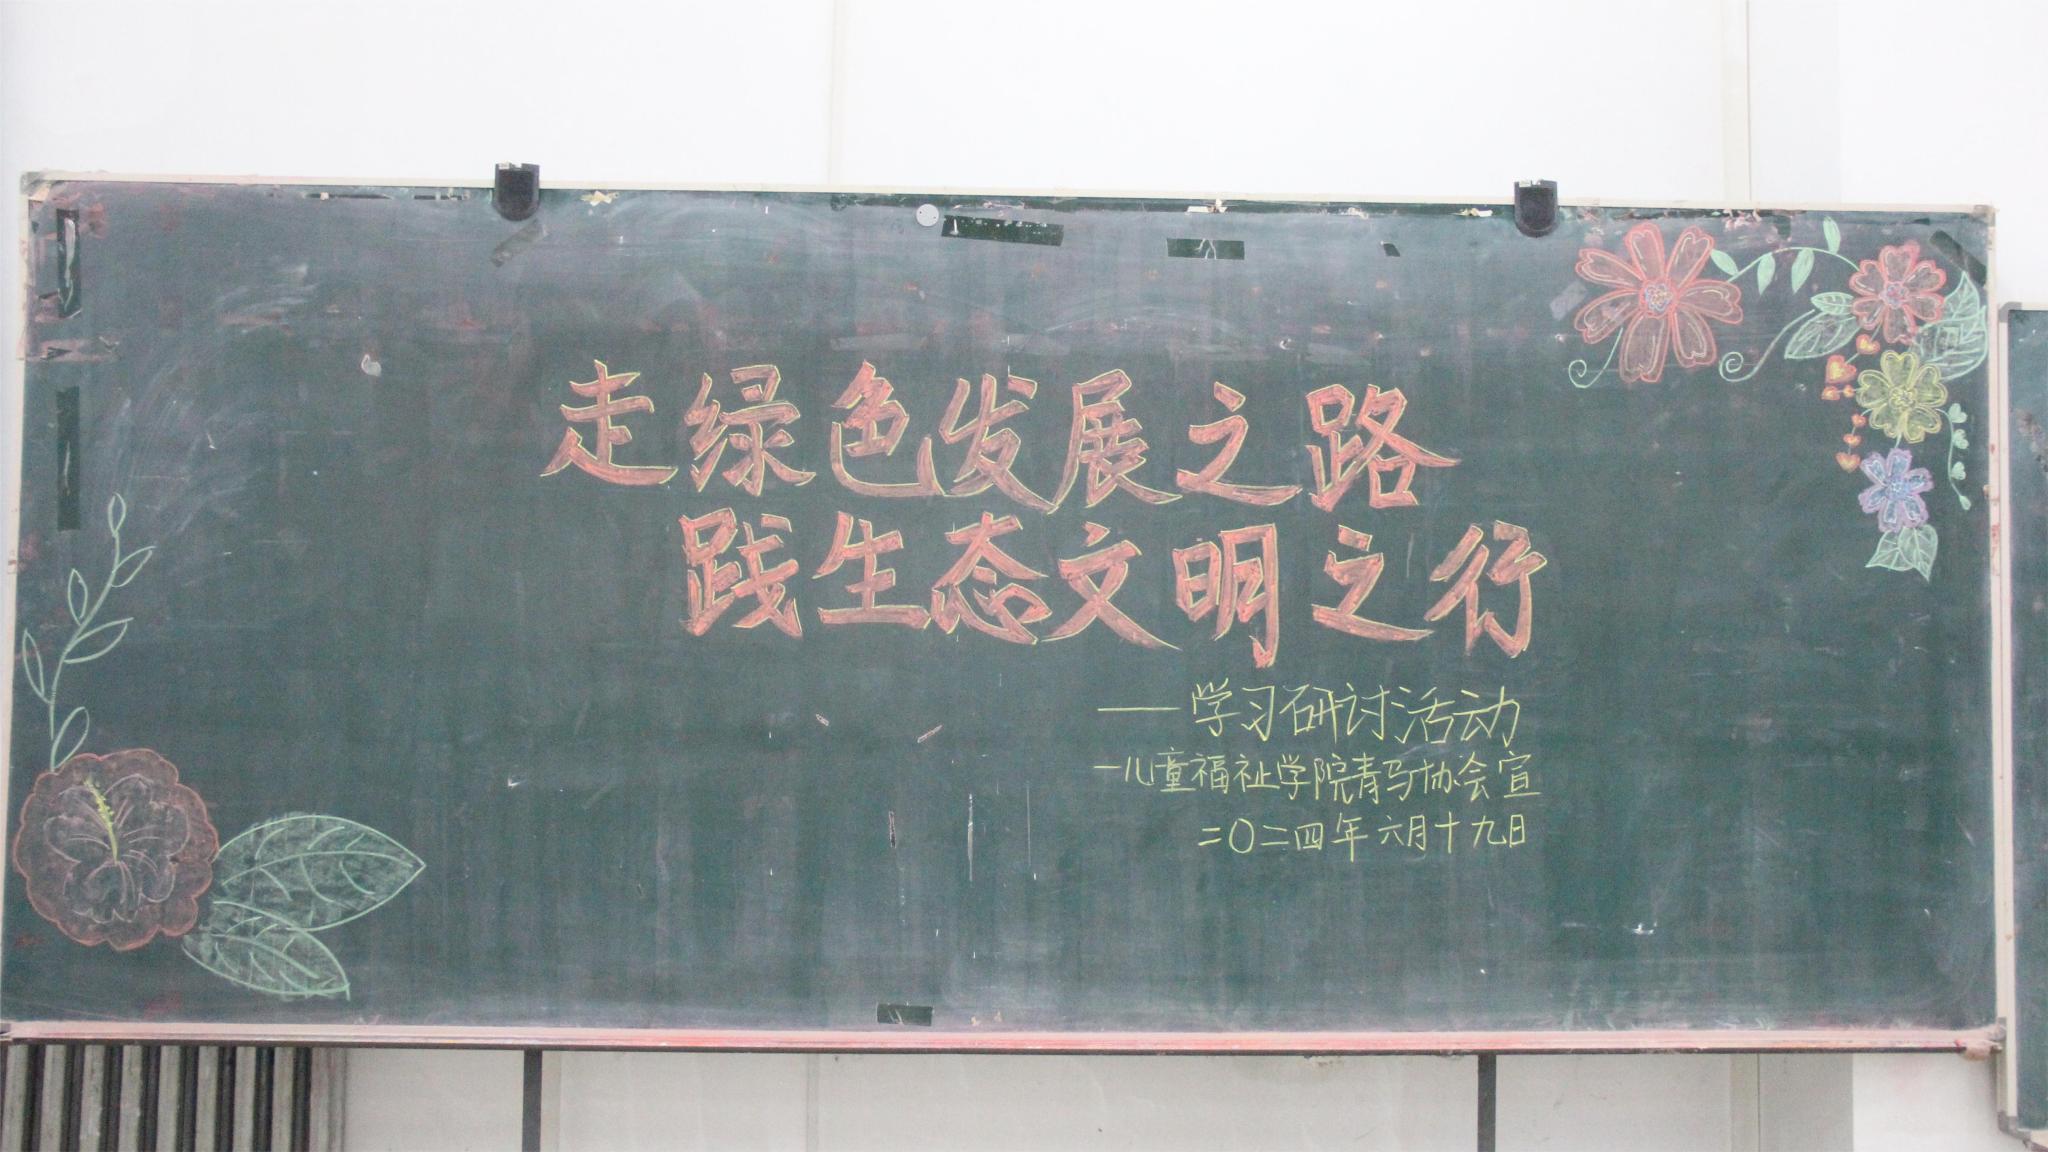 走绿色发展之路
践生态文明之行
——学习研讨活动
—儿童福祉学院青马协会宣
二〇二四年六月十九日